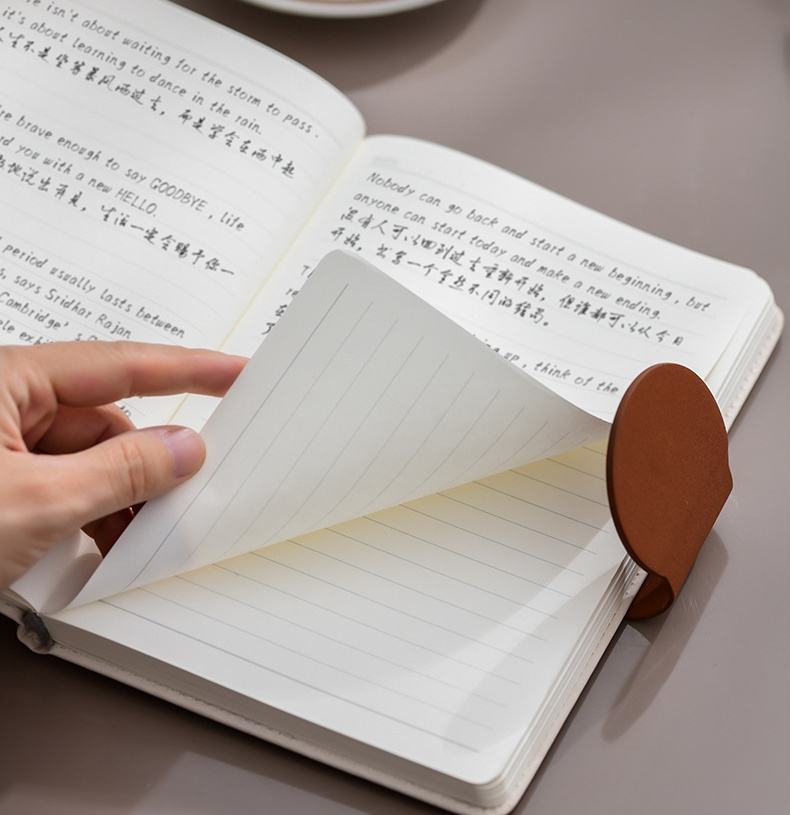 isn't about waiting for the storm to pass.
it's about learning to dance in the rain.
生不是坐等暴风雨过去，而是学会在雨中起
brave enough to say GOODBYE, life
you with a new HELLO.
说出再见，生活一定会赐予你一
period usually lasts between
says Sridhar Rajan
Cambridge's
Nobody can go back and start a new beginning, but
anyone can start today and make a new ending.
没有人可以回到过去重新开始，但谁都可以从今日
开始，书写一个全然不同的结局。
up, think of the